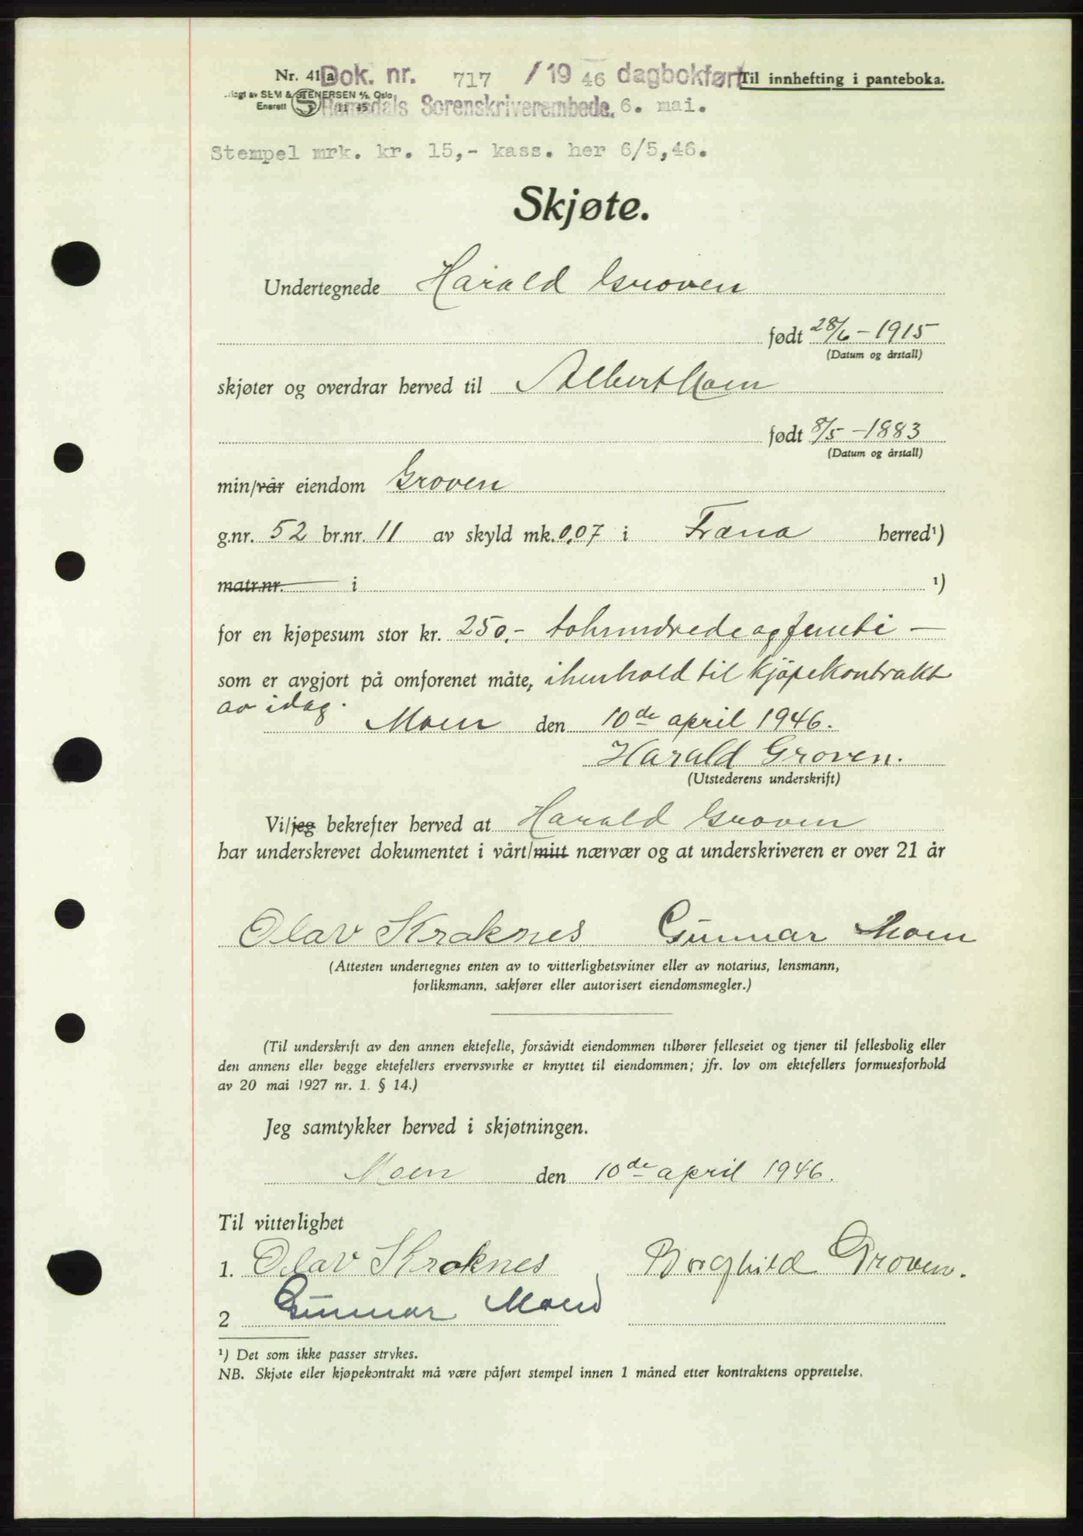 Nr. 41 a Dok. nr. 717 / 19 46 dagbokført Til innhefting i panteboka.
SEM & STENERSEN A/S, Oslo
Enerett S 11 45 Romsdals Sorenskriverembede. 6. mai.
Stempel mrk. kr. 15,- kass. her 6/5,46.
Skjøte.
Undertegnede Harald Groven
født 28/6-1915
(Datum og årstall)
skjøter og overdrar herved til Albert Moen
født 8/5-1883
(Datum og årstall)
min/vår eiendom Groven
g.nr. 52 br.nr. 11 av skyld mk. 0,07 i Fræna herred¹)
matr.nr. i ¹)
for en kjøpesum stor kr. 250,- tohundrede og femti —
som er avgjort på omforenet måte, i henhold til kjøpekontrakt
av idag.
Moen den 10de april 1946.
Harald Groven.
(Utstederens underskrift)
Vi/jeg bekrefter herved at Harald Groven
har underskrevet dokumentet i vårt/mitt nærvær og at underskriveren er over 21 år
Olav Kraknes Gunnar Moen
(Attesten undertegnes enten av to vitterlighetsvitner eller av notarius, lensmann,
forliksmann, sakfører eller autorisert eiendomsmegler.)
(Til underskrift av den annen ektefelle, forsåvidt eiendommen tilhører felleseiet og tjener til fellesbolig eller
den annens eller begge ektefellers ervervsvirke er knyttet til eiendommen; jfr. lov om ektefellers formuesforhold
av 20 mai 1927 nr. 1. § 14.)
Jeg samtykker herved i skjøtningen.
Moen den 10de april 1946.
Til vitterlighet
1. Olav Kraknes Borghild Groven.
2 Gunnar Moen
¹) Det som ikke passer strykes.
NB. Skjøte eller kjøpekontrakt må være påført stempel innen 1 måned etter kontraktens opprettelse.